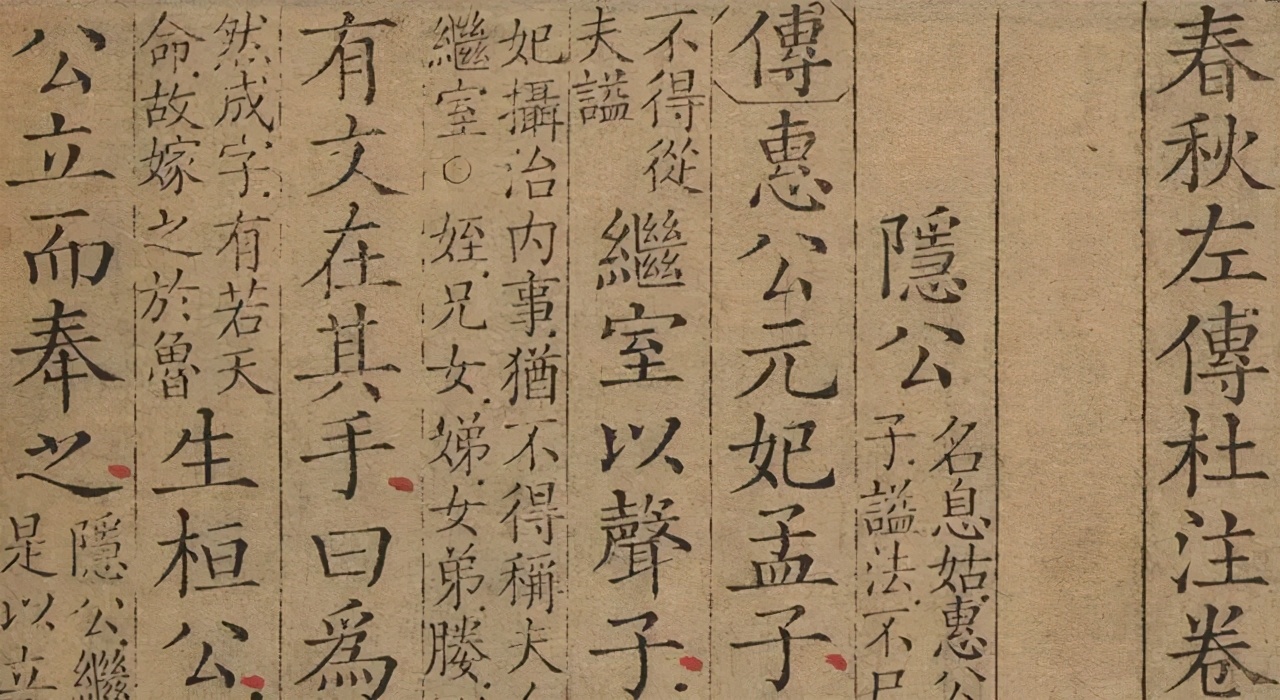 春秋左傳杜注卷
隱公
名息姑惠公
子謚法不尸
傳惠公元妃孟子
不得從
夫謚
繼室以聲子
妃攝治内事猶不得稱夫人
繼室○姪兄女娣女弟媵
有文在其手曰爲
然成字有若天
命故嫁之於魯
生桓公
公立而奉之
隱公繼
是以立